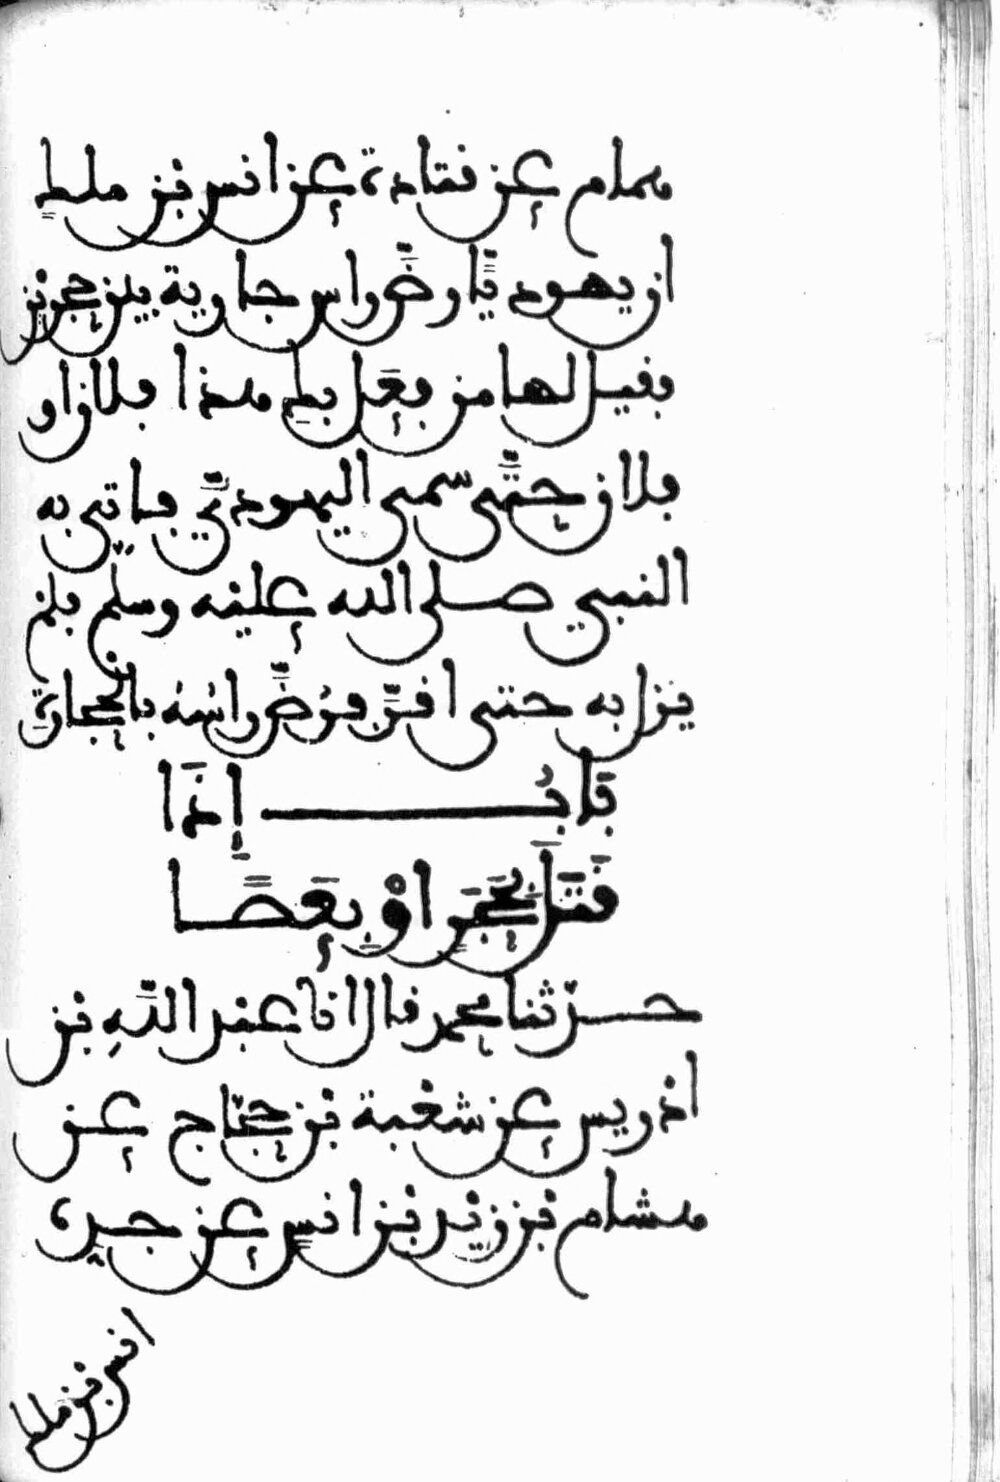 همام عن قتادة عن انس بن ملك
ان يهوديًّا رضَّ راس جارية بين حجرين
فقيل لها من فعل بك هذا فلان او
فلان حتَّى سمى اليهوديّ فاتى به
النبي صلى الله عليه وسلم فلم
يزل به حتى اقرّ فرُضَّ راسُهُ بالحجارة
بَابُ إِذَا
قَتَلَ بِحَجَرٍ اوْ بِعَصًا
حدّثنا محمد قال انا عبد اللَّهِ بن
ادريس عن شعبة بن حجّاج عن
هشام بن زيد بن انس عن جده
انس بن ملك